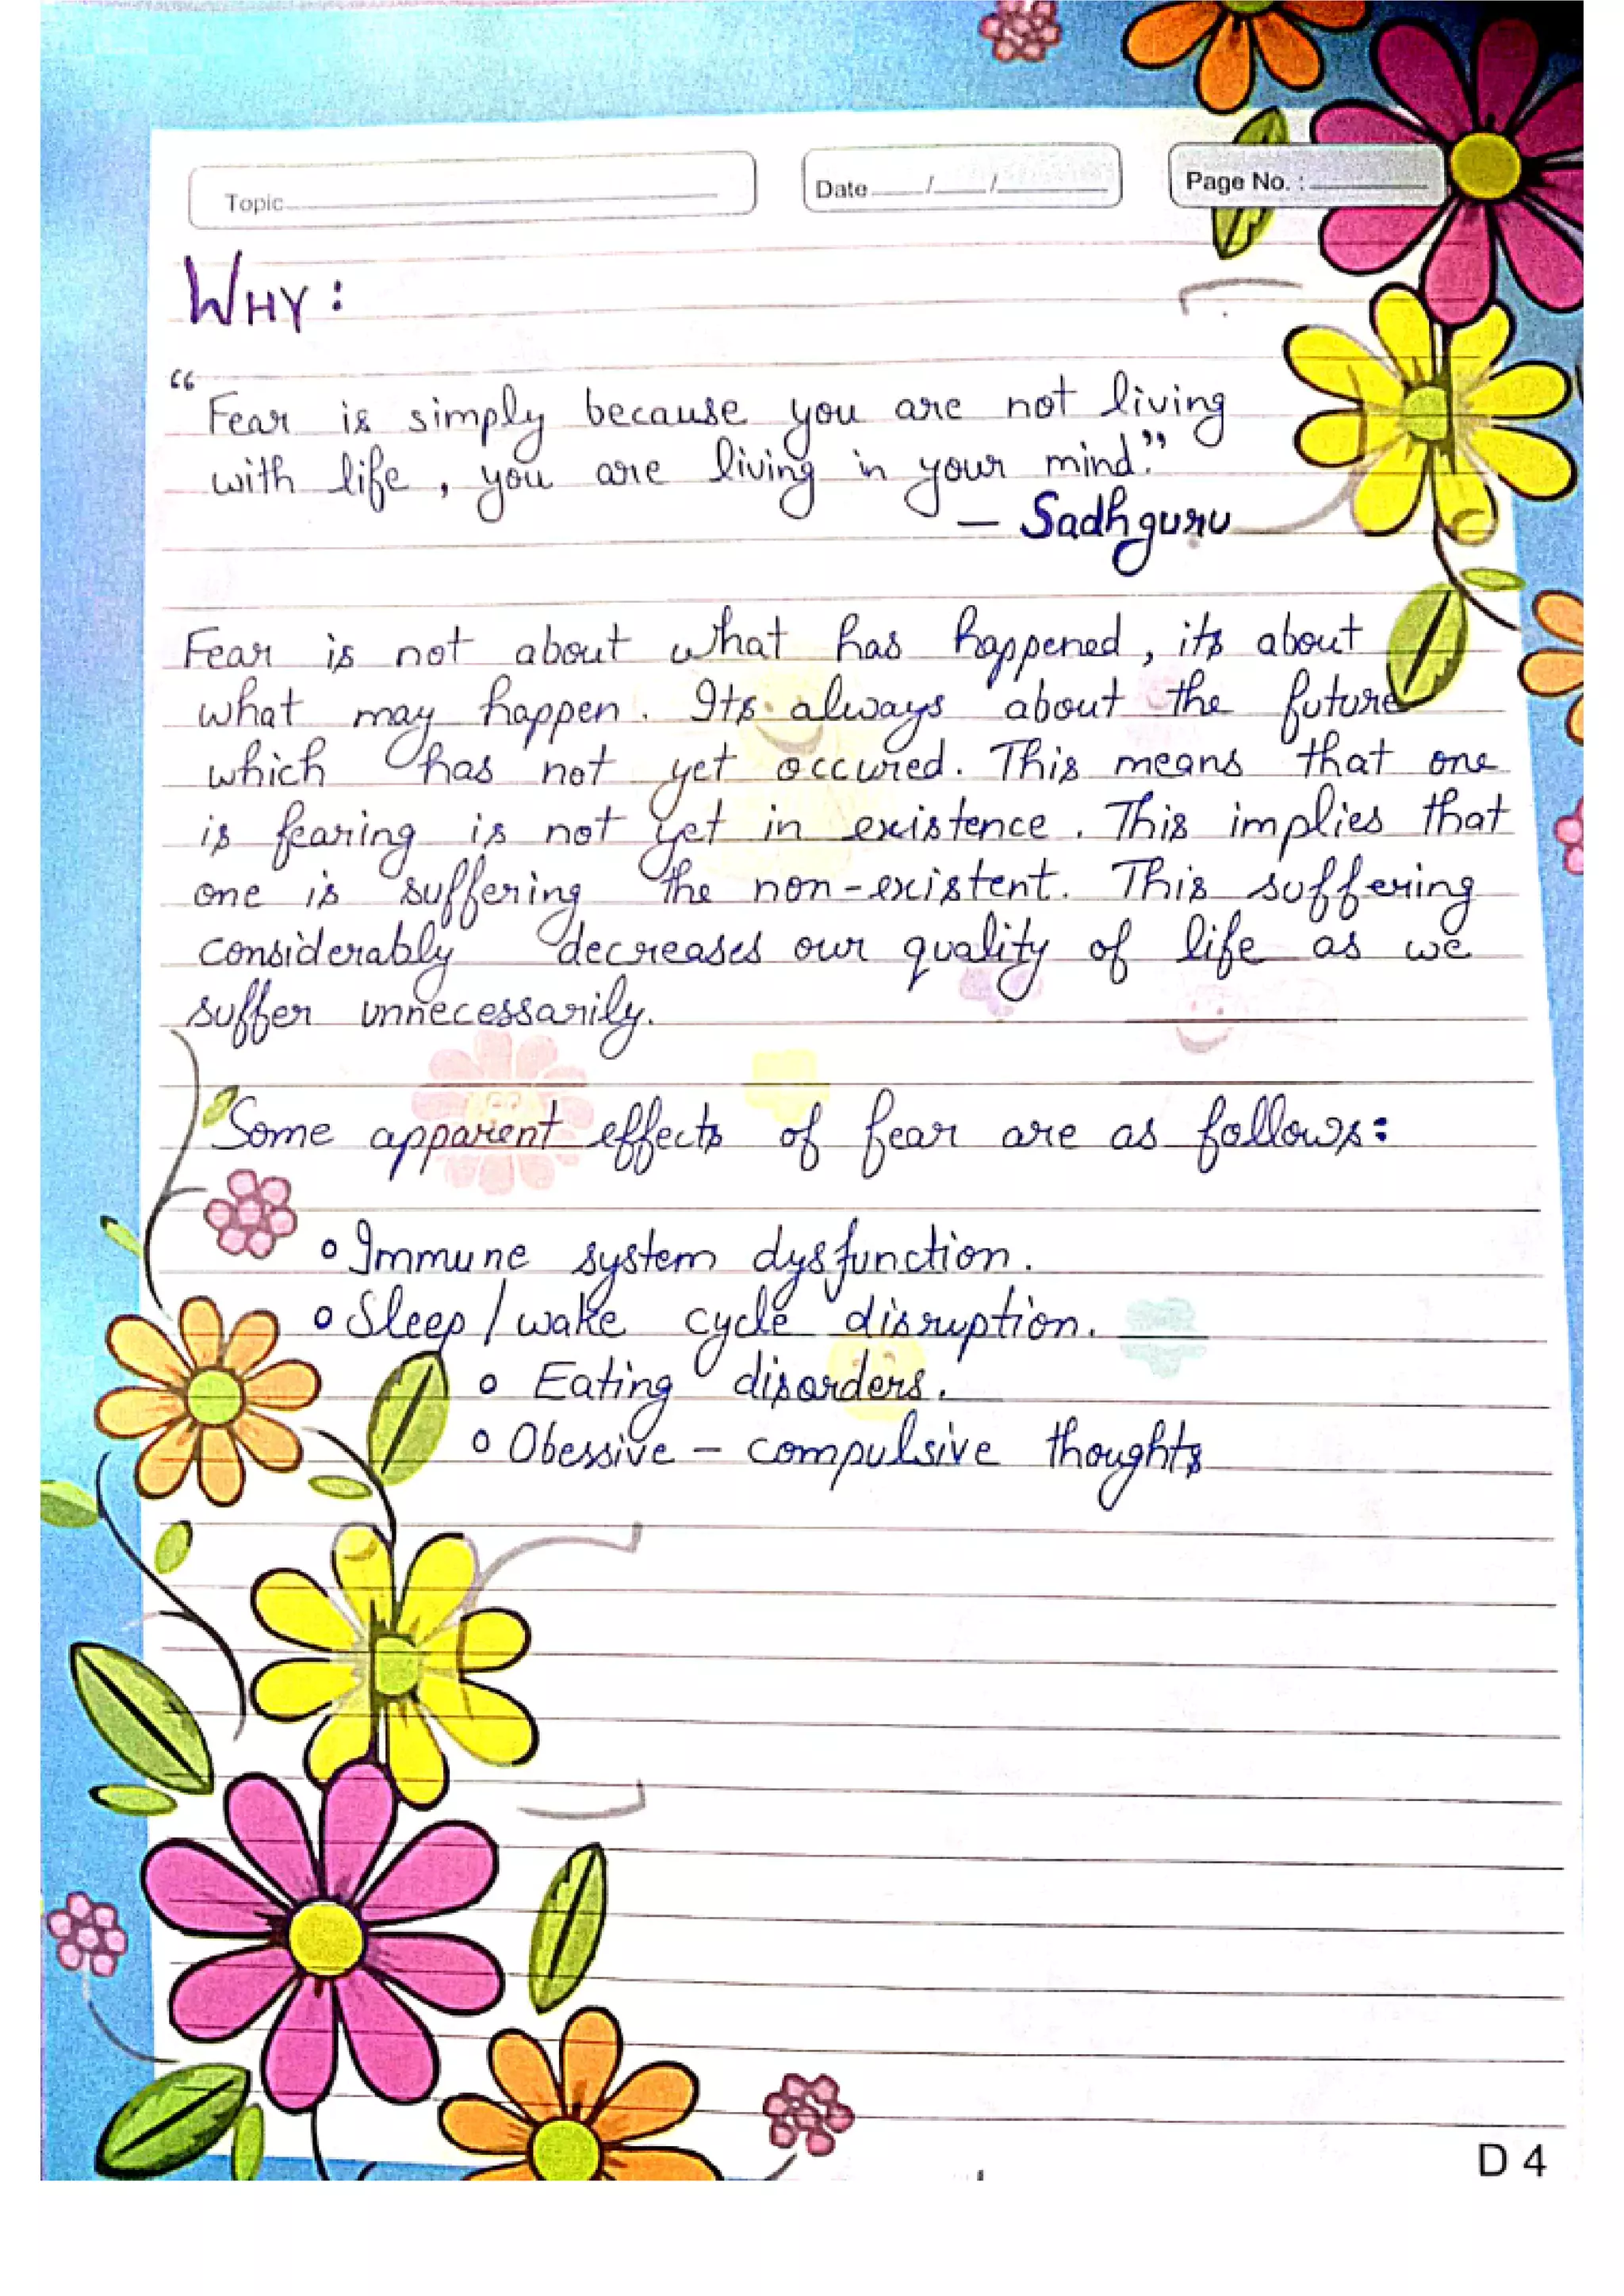 Topic
Date / /
Page No. :
WHY :
“Fear is simply because you are not living
with life , you are living in your mind.”
– Sadhguru
Fear is not about what has happened , its about
what may happen . Its always about the future
which has not yet occured. This means that one
is fearing is not yet in existence . This implies that
one is suffering the non-existent. This suffering
considerably decreases our quality of life as we
suffer unnecessarily.
Some apparent effects of fear are as follows:
o Immune system dysfunction.
o Sleep / wake cycle disruption.
o Eating disorders.
o Obessive – compulsive thoughts
D 4